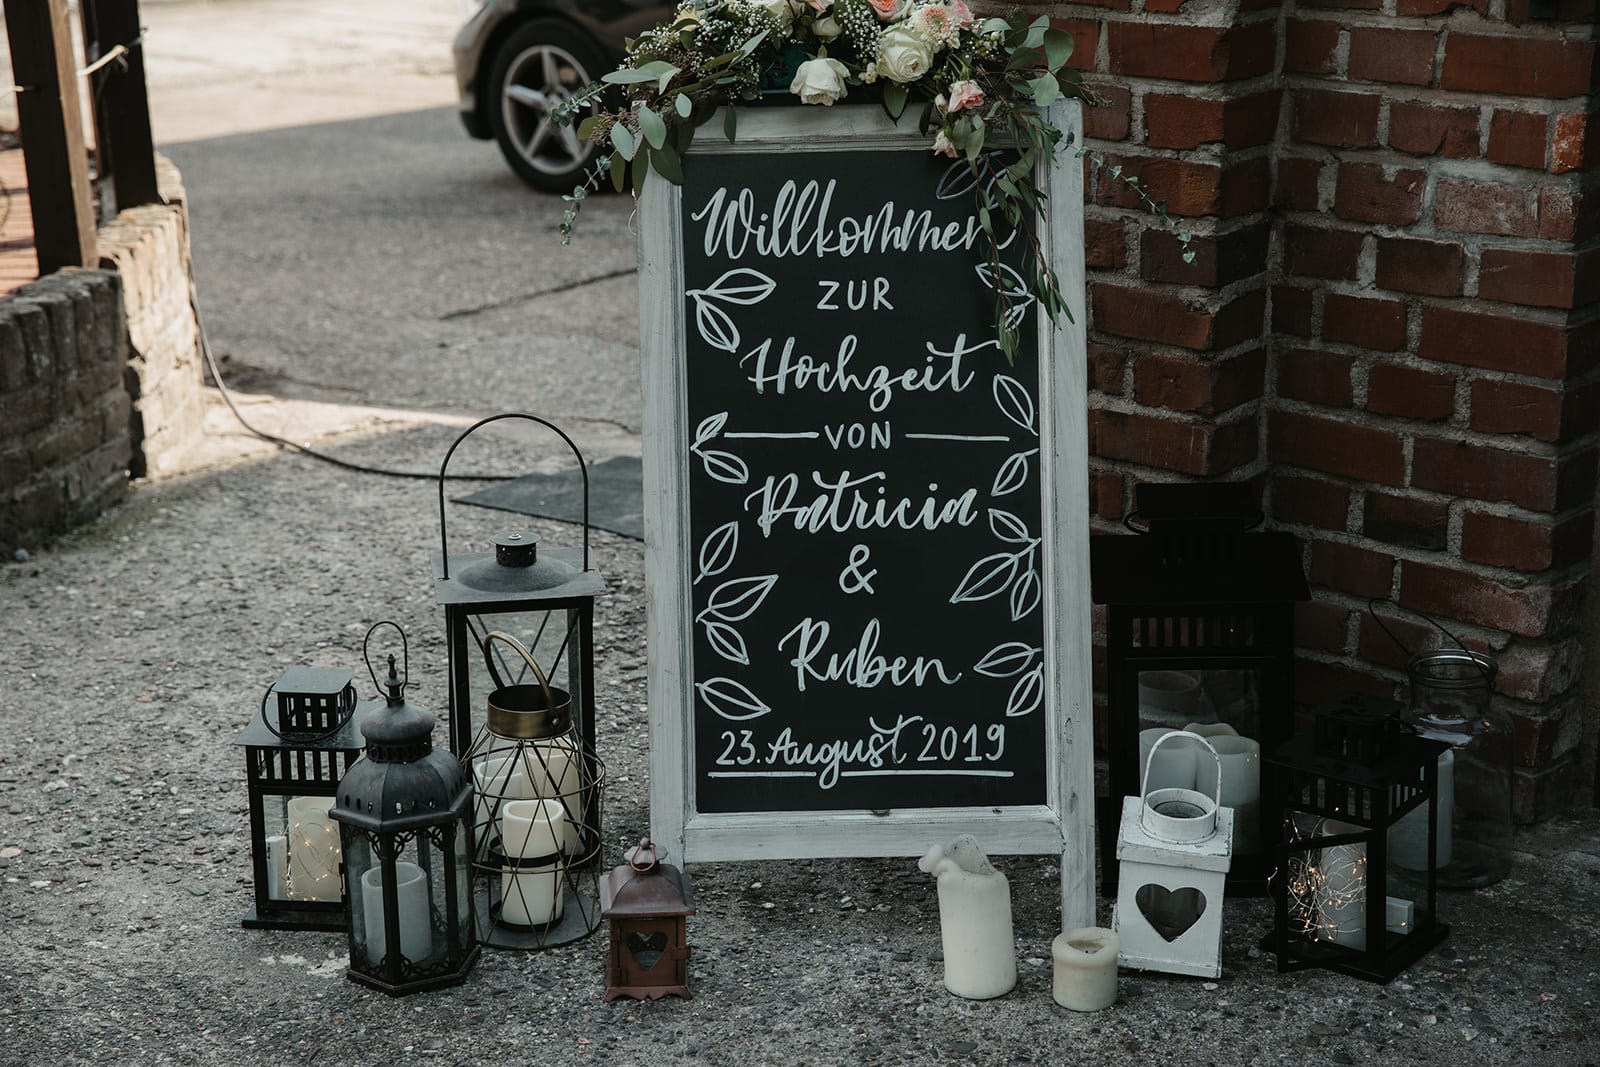 Willkommen
ZUR
Hochzeit
VON
Patricia
&
Ruben
23. August 2019